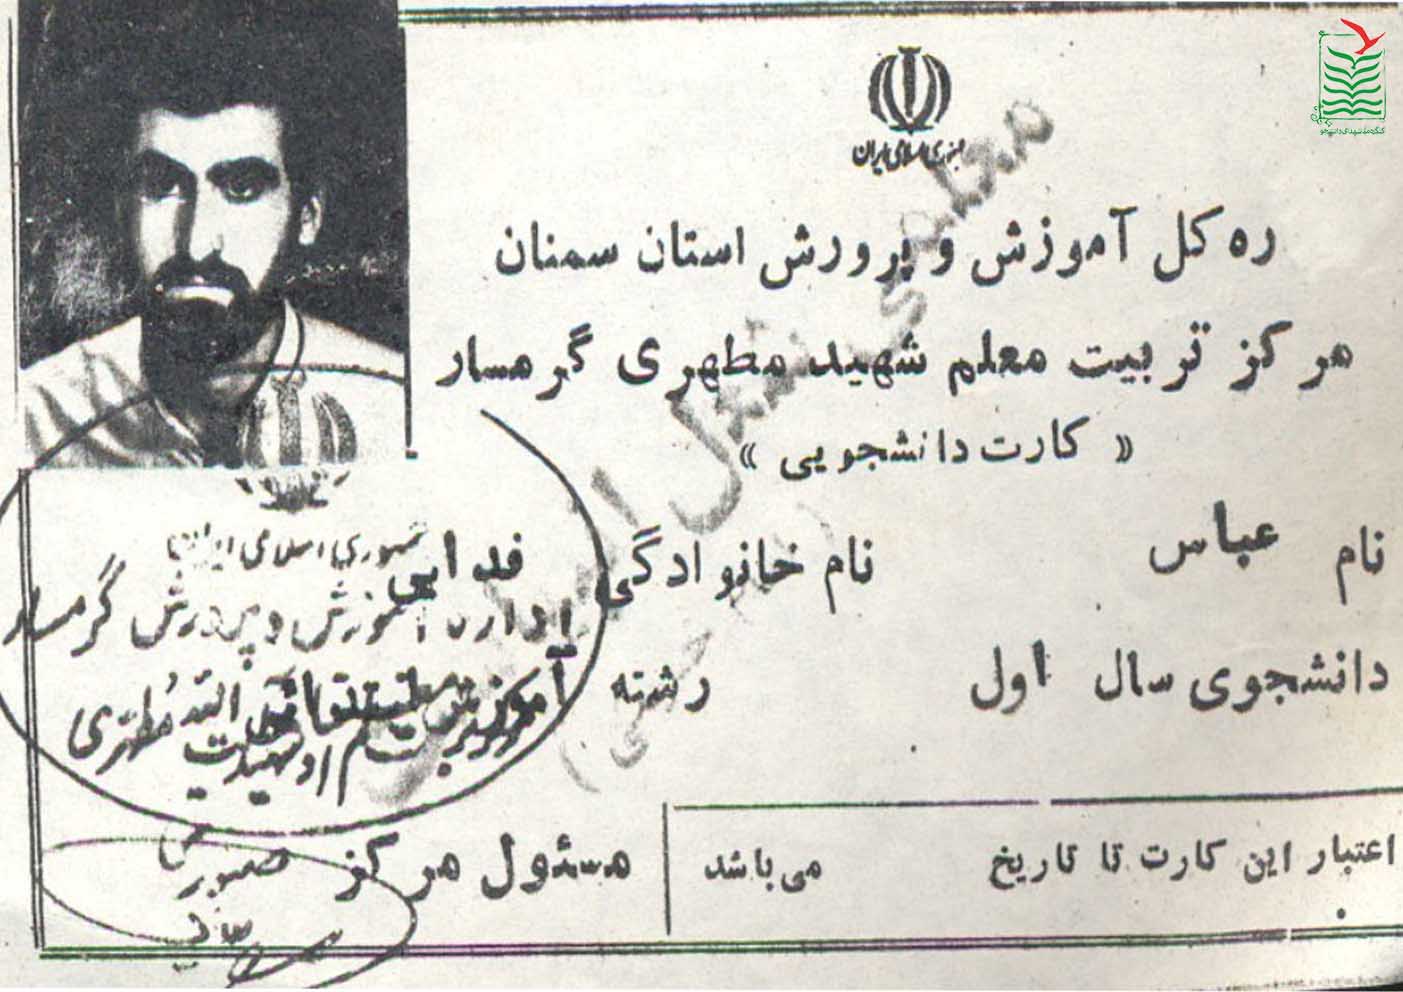 جمهوری اسلامی ایران
ره کل آموزش و پرورش استان سمنان
مرکز تربیت معلم شهید مطهری گرمسار
« کارت دانشجویی »
نام عباس نام خانوادگی فدایی
دانشجوی سال اول رشته آموزش
اعتبار این کارت تا تاریخ می باشد
مسئول مرکز
جمهوری اسلامی ایران
اداره آموزش و پرورش گرمسار
کنگره ملی شهدای دانشجو